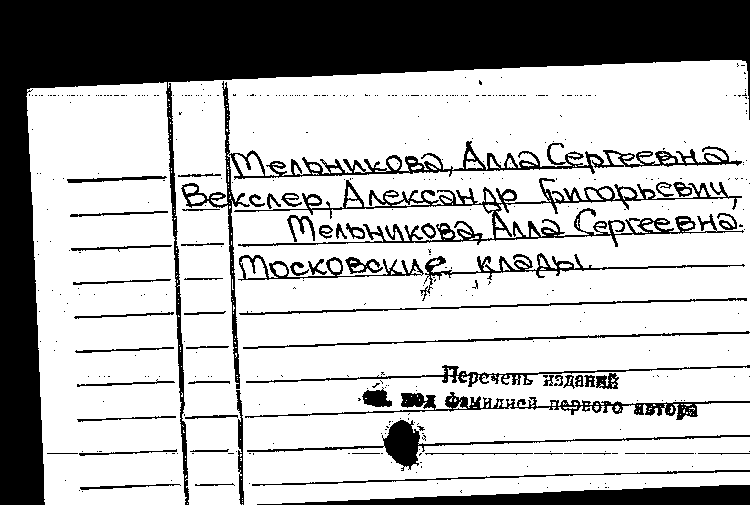 Мельникова, Алла Сергеевна
Векслер, Александр Григорьевич,
Мельникова, Алла Сергеевна.
Московские клады.
Перечень изданий
см. под фамилией первого автора